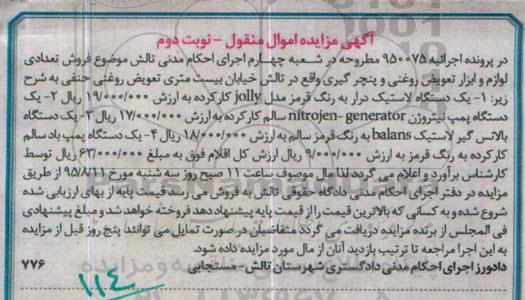 آگهی مزایده اموال منقول - نوبت دوم
در پرونده اجرائیه ۹۵۰۰۷۵ مطروحه در شعبه چهارم اجرای احکام مدنی تالش موضوع فروش تعدادی
لوازم و ابزار تعویض روغنی و پنچر گیری واقع در تالش خیابان بیست متری تعویض روغنی حنفی به شرح
زیر: ۱- یک دستگاه لاستیک درار به رنگ قرمز مدل jolly کارکرده به ارزش ۱۹/۰۰۰/۰۰۰ ریال ۲- یک
دستگاه پمپ نیتروژن nitrojen-generator سالم کارکرده به ارزش ۱۷/۰۰۰/۰۰۰ ریال ۳- یک دستگاه
بالانس گیر لاستیک balans به رنگ قرمز سالم به ارزش ۱۸/۰۰۰/۰۰۰ ریال ۴- یک دستگاه پمپ باد سالم
کارکرده به رنگ قرمز به ارزش ۹/۰۰۰/۰۰۰ ریال ارزش کل اقلام فوق به مبلغ ۶۳/۰۰۰/۰۰۰ ریال توسط
کارشناس برآورد و اعلام می گردد لذا مال موصوف ساعت ۱۱ صبح روز سه شنبه مورخ ۹۵/۸/۱۱ از طریق
مزایده در دفتر اجرای احکام مدنی دادگاه حقوقی تالش به فروش می رسد قیمت پایه از بهای ارزیابی شده
شروع شده و به کسانی که بالاترین قیمت را از قیمت پایه پیشنهاد دهد فروخته خواهد شد و مبلغ پیشنهادی
فی المجلس از برنده مزایده دریافت می گردد متقاضیان در صورت تمایل می توانند پنج روز قبل از مزایده
به این اجرا مراجعه تا ترتیب بازدید آنان از مال مورد مزایده داده شود.
دادورز اجرای احکام مدنی دادگستری شهرستان تالش - مستجابی ۷۷۶
۱۱۴